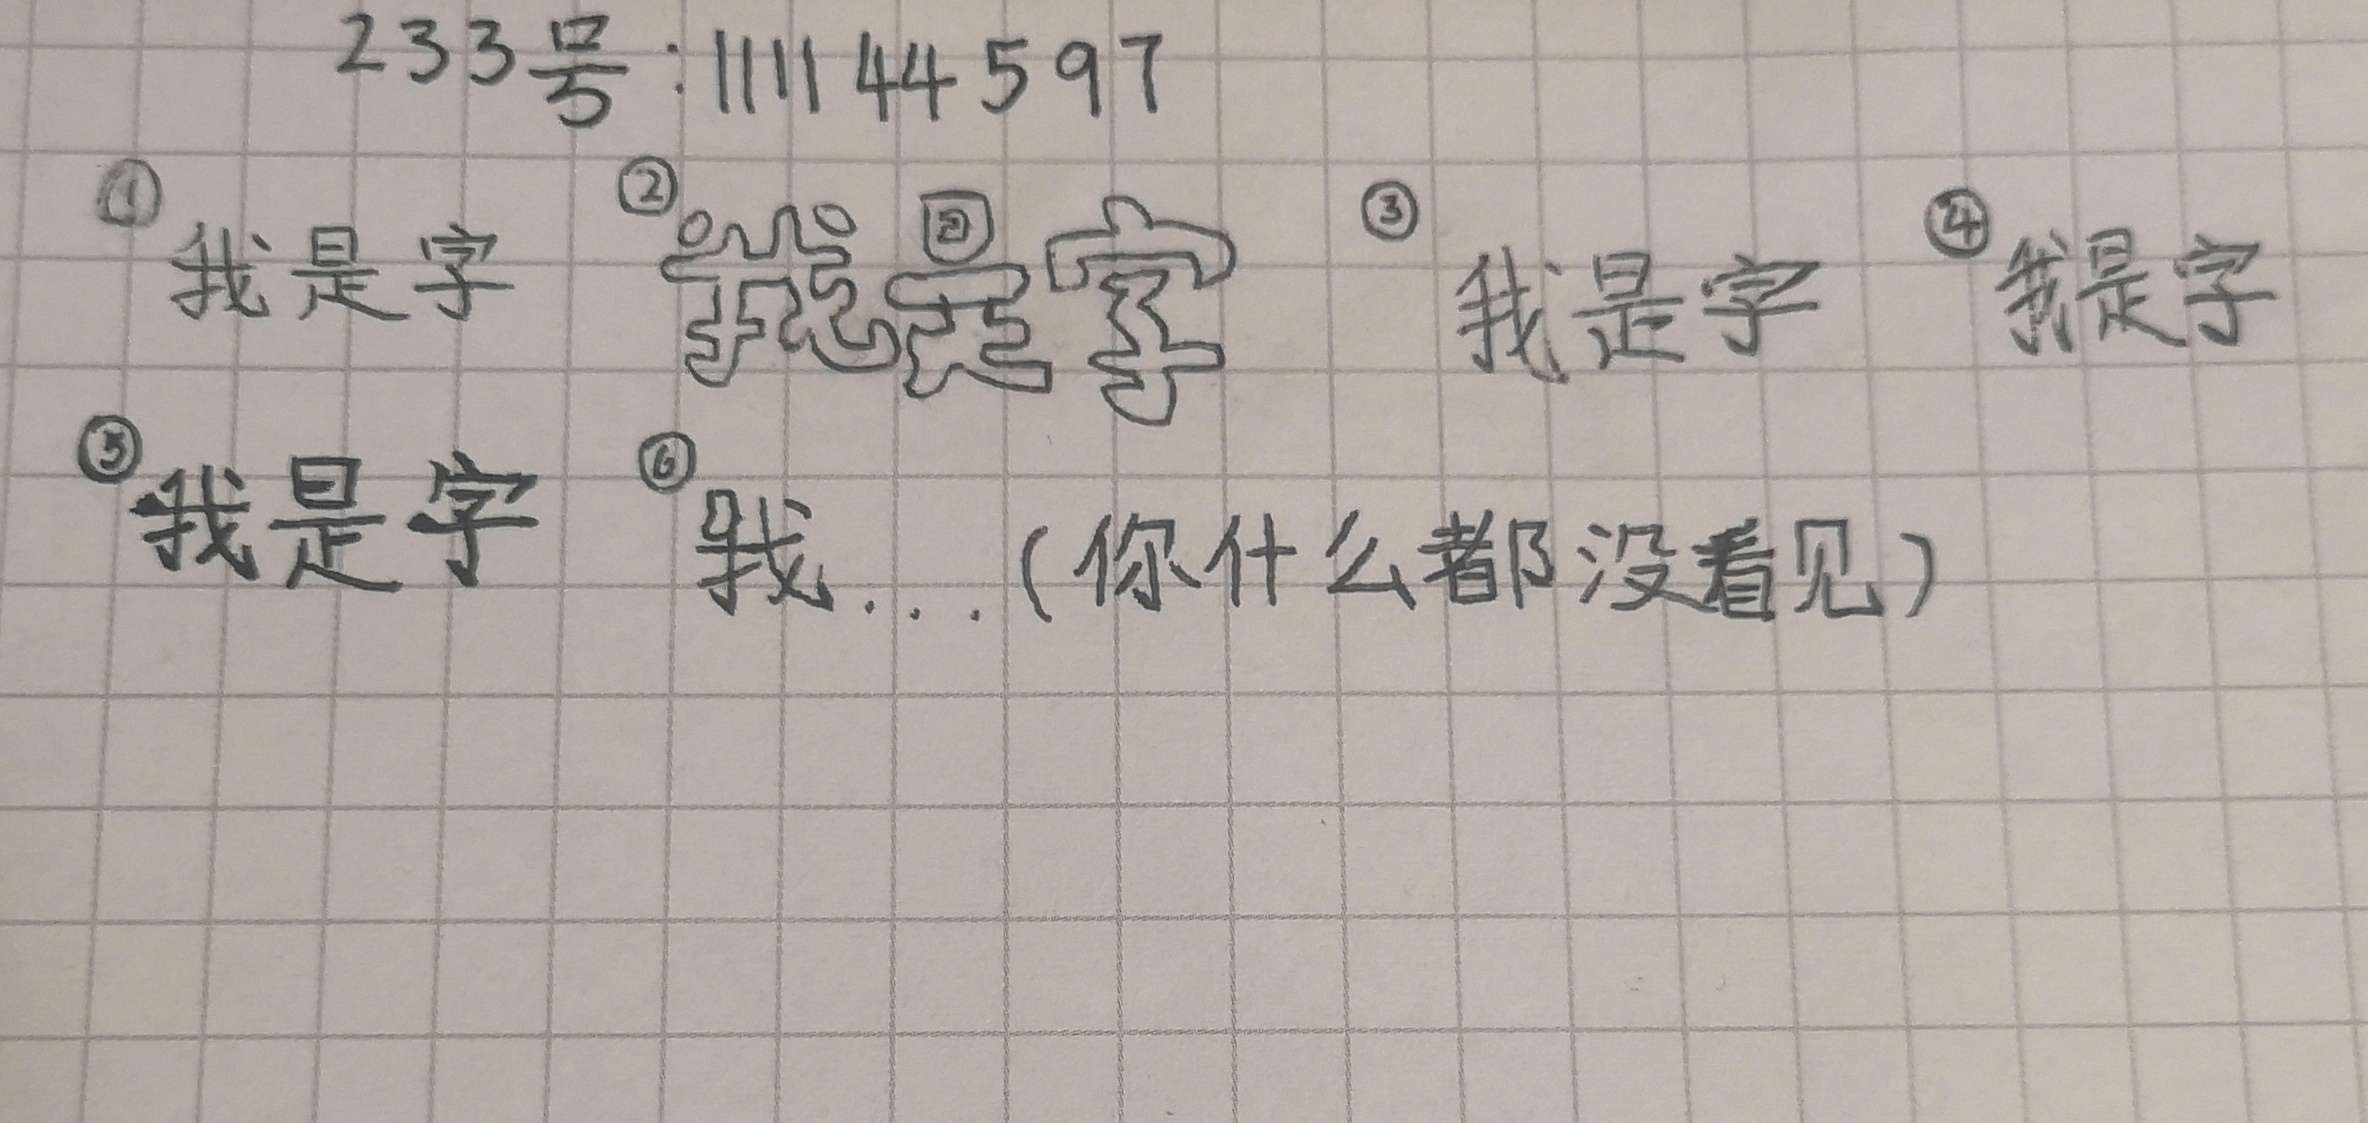 233号:111144597
①我是字 ②我是字 ③我是字 ④我是字
⑤我是字 ⑥我...(你什么都没看见)